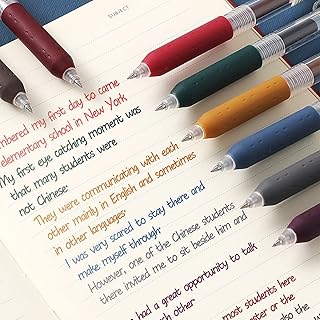 SUBJECT
mbered my first day to came
elementary school in New York
My first eye catching moment was
that many students were
not Chinese.
They were communicating with each
other mainly in English and sometimes
in other languages.
I was very scared to stay there and
make myself through.
However, one of the Chinese students
there invited me to sit beside him and
had a great opportunity to talk
most students here
ster or the
other